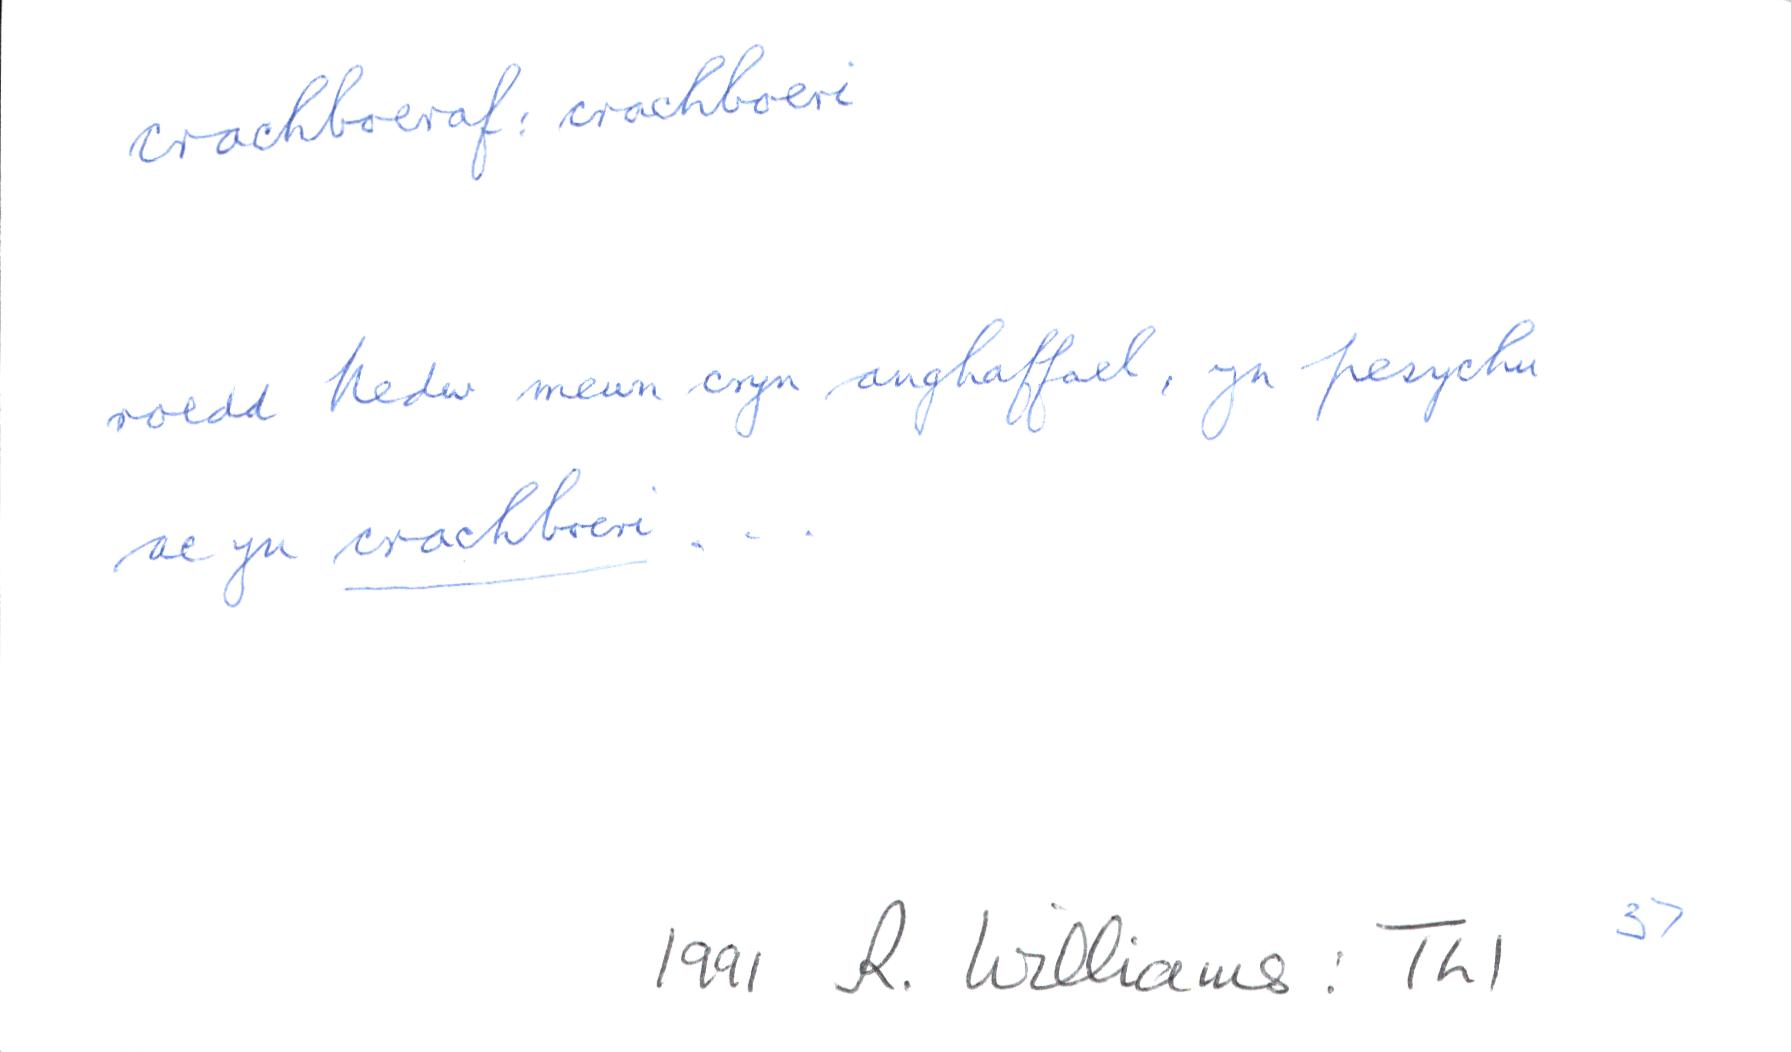 crachboeraf: crachboeri
roedd Nedw mewn cryn anghaffael, yn pesychu
ac yn crachboeri . . .
1991 R. Williams: ThI 37